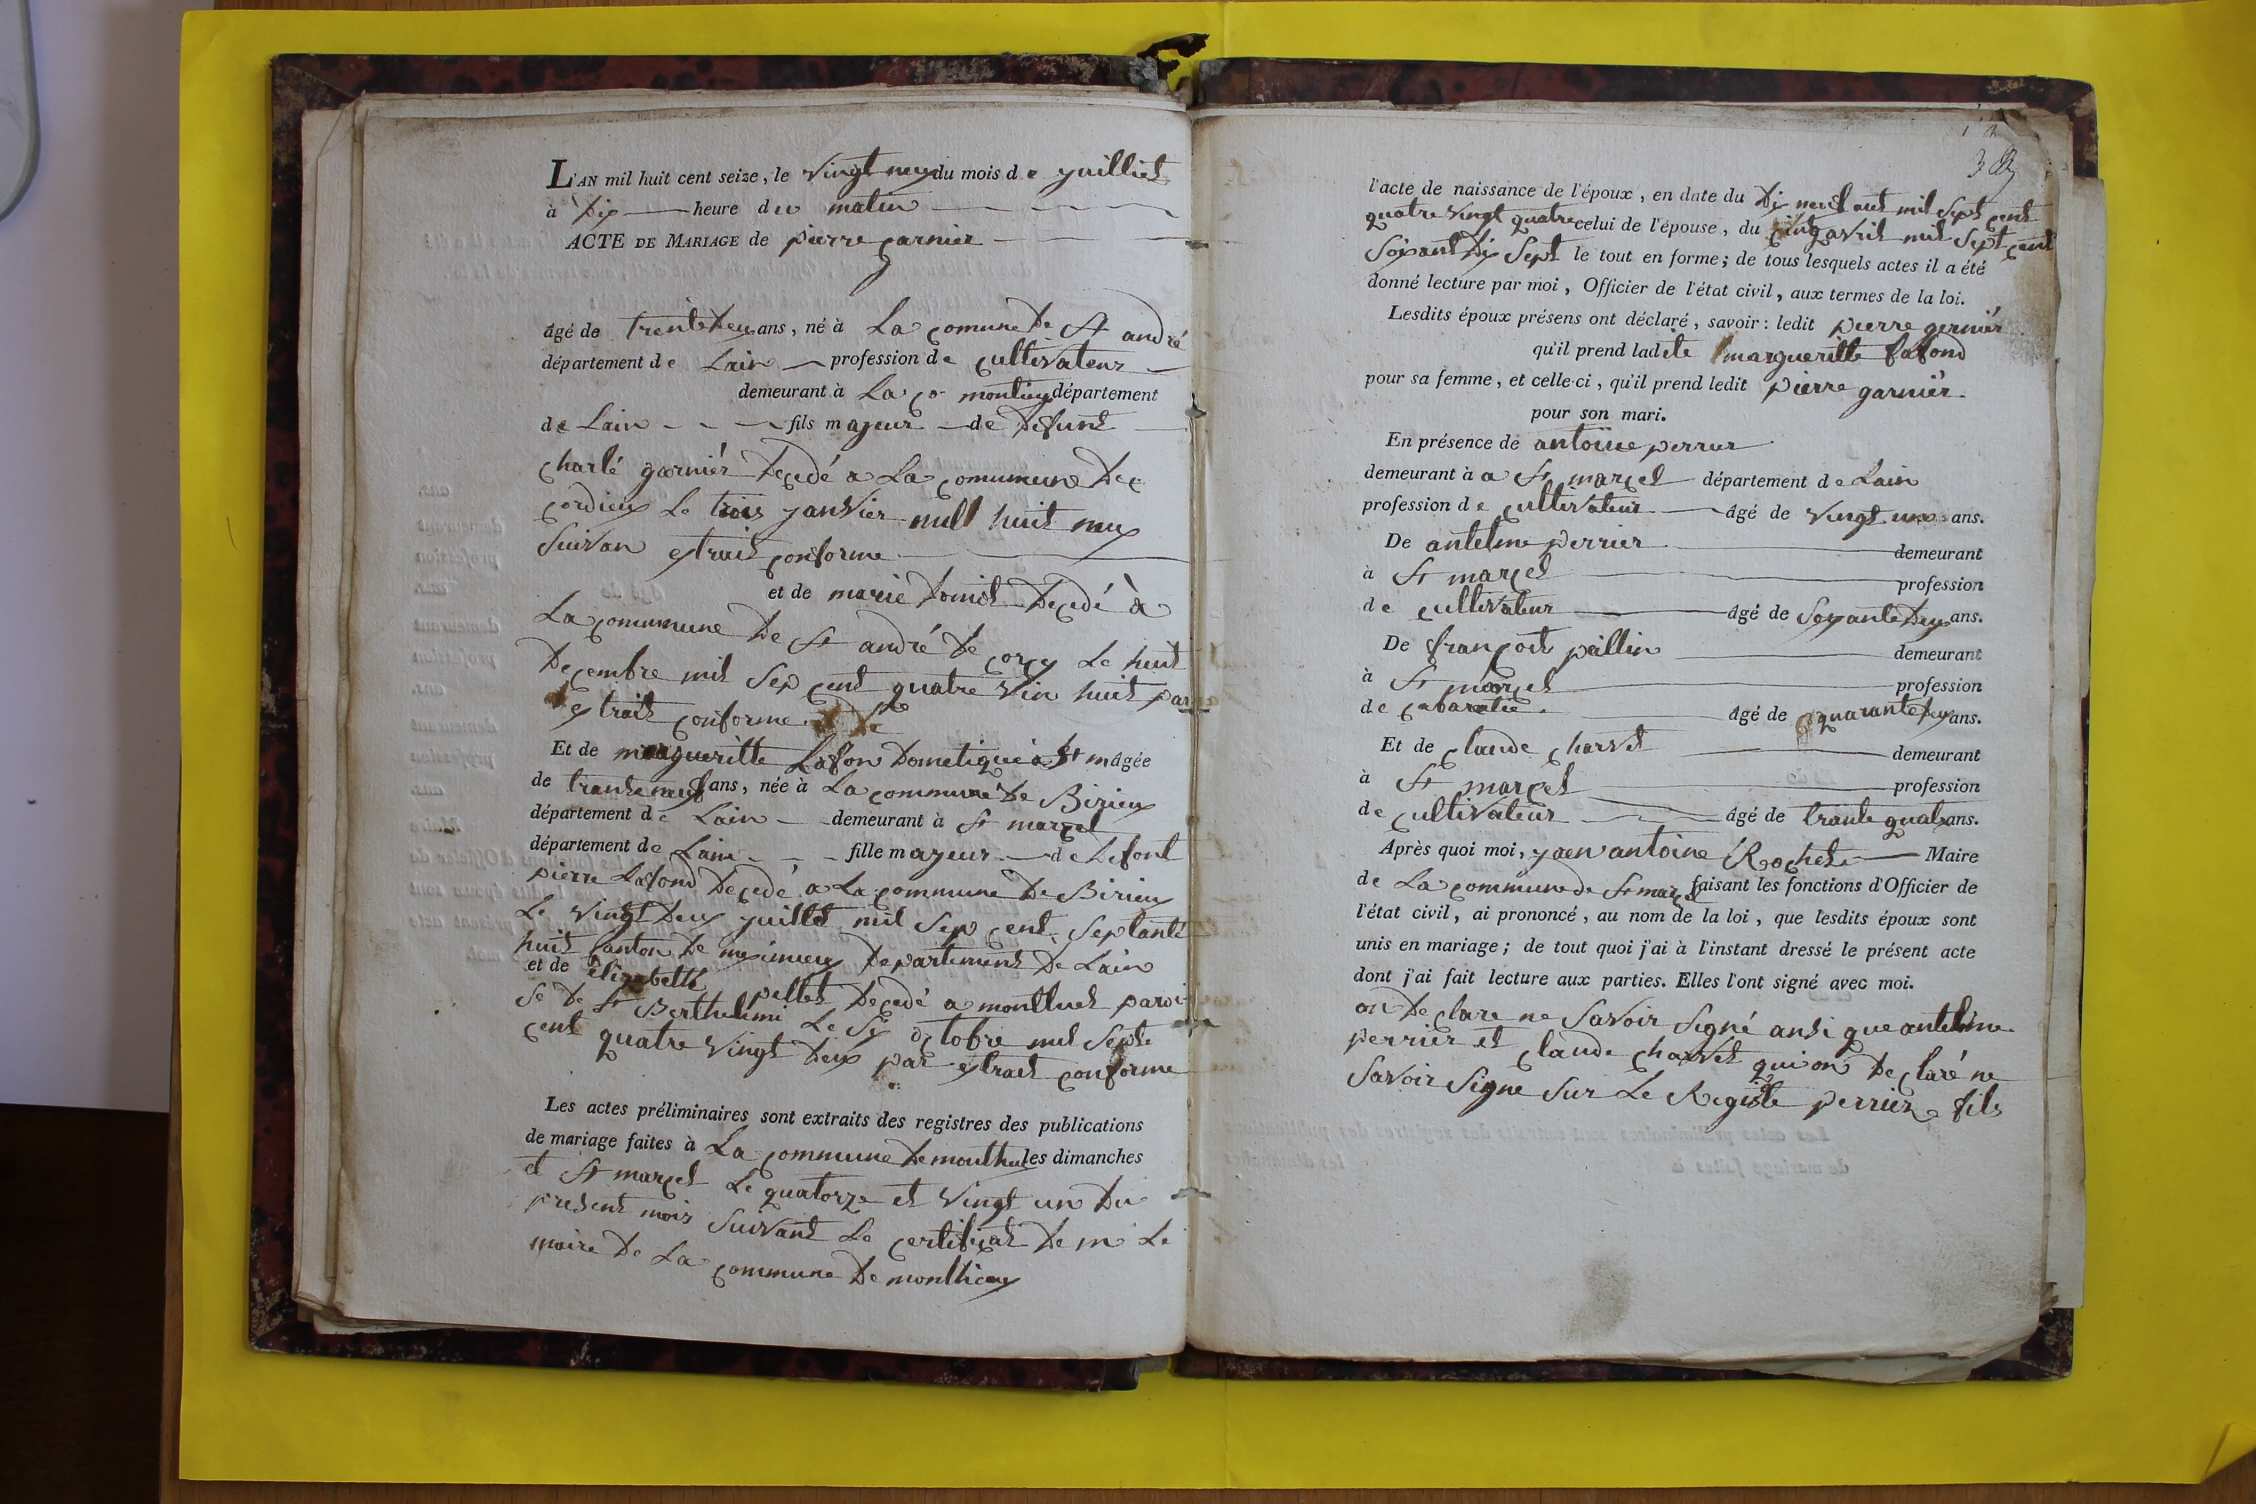 L'AN mil huit cent seize, le vingt neuf du mois de juilliet
à Dix heure du matin
ACTE DE MARIAGE de pierre garnier
âgé de trente Deux ans, né à La comune De St andré
département de Lain profession de cultivateur
demeurant à La co montieux département
de Lain fils majeur de Defunt
charlé garniér Decedé a La comumune De
cordieux Le trois janvier mill huit neuf
Suivan extrait conforme
et de marie Decedé à
La comumune De St andré De corcy Le huit
Decembre mil Sep cent quatre vin huit par
extrait conforme
Et de margueritte Lafon Dometique a St m agée
de trante neuf ans, née à La commune De Birieux
département de Lain demeurant à St marcel
département de Lain fille majeur de Defont
pierre Lafond Decedé a La commune De Birieux
Le vingt Deux juillet mil Sep cent Septante
huit canton De meximieux Departement De Lain
et de élizabette pellet Decedé a montluel paroi
Se De St Berthelimi Le Six octobre mil Septe
cent quatre vingt Deux par extrait conforme
Les actes préliminaires sont extraits des registres des publications
de mariage faites à La commune De les dimanches
et St marcel Le quatorze et vingt un Du
present mois Suivant Le certificat De m Le
maire De La commune De monthieux
38
l'acte de naissance de l'époux, en date du Dix neuf aut mil Sept cent
quatre vingt quatre celui de l'épouse, du cinq avril mil Sept cent
Soixant Dix Sept le tout en forme; de tous lesquels actes il a été
donné lecture par moi, Officier de l'état civil, aux termes de la loi.
Lesdits époux présens ont déclaré, savoir: ledit pierre gerniér
qu'il prend ladite margueritte Lafond
pour sa femme, et celle-ci, qu'il prend ledit pierre garniér
pour son mari.
En présence de antoine perrier
demeurant à a St marcel département de Lain
profession de cultivateur âgé de vingt un ans.
De antelme perrier demeurant
à St marcel profession
de cultivateur âgé de Soxante Deux ans.
De françois pallin demeurant
à St marcel profession
de cabaratié âgé de quarante Deux ans.
Et de claude charvet demeurant
à St marcel profession
de cultivateur âgé de trante quatr ans.
Après quoi moi, jaen antoine Rochet Maire
de La commune de St marcel faisant les fonctions d'Officier de
l'état civil, ai prononcé, au nom de la loi, que lesdits époux sont
unis en mariage; de tout quoi j'ai à l'instant dressé le présent acte
dont j'ai fait lecture aux parties. Elles l'ont signé avec moi.
on De clare ne Savoir Signé ansi que antelme
perrier et claude charvet qui on De claré ne
Savoir Signe Sur Le Registe perrier fils